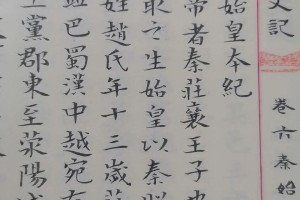 史記 卷六 秦始
始皇本紀
帝者秦莊襄王子也
取之生始皇以秦昭
姓趙氏年十三歲莊
巴蜀漢中越宛有
黨郡東至滎陽滅